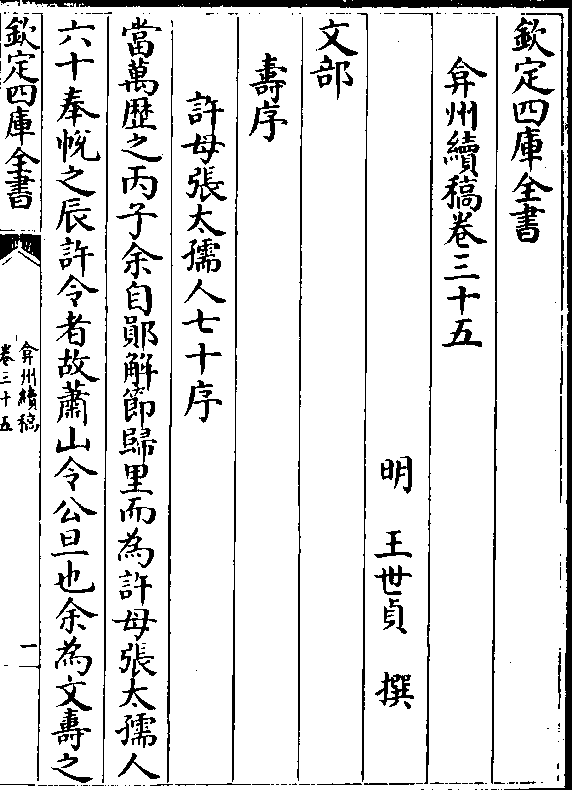 欽定四庫全書
弇州續稿卷三十五
明 王世貞 撰
文部
壽序
許母張太孺人七十序
當萬歷之丙子余自鄖解節歸里而為許母張太孺人
六十奉帨之辰許令者故蕭山令公旦也余為文壽之
欽定四庫全書
弇州續稿
卷三十五
一